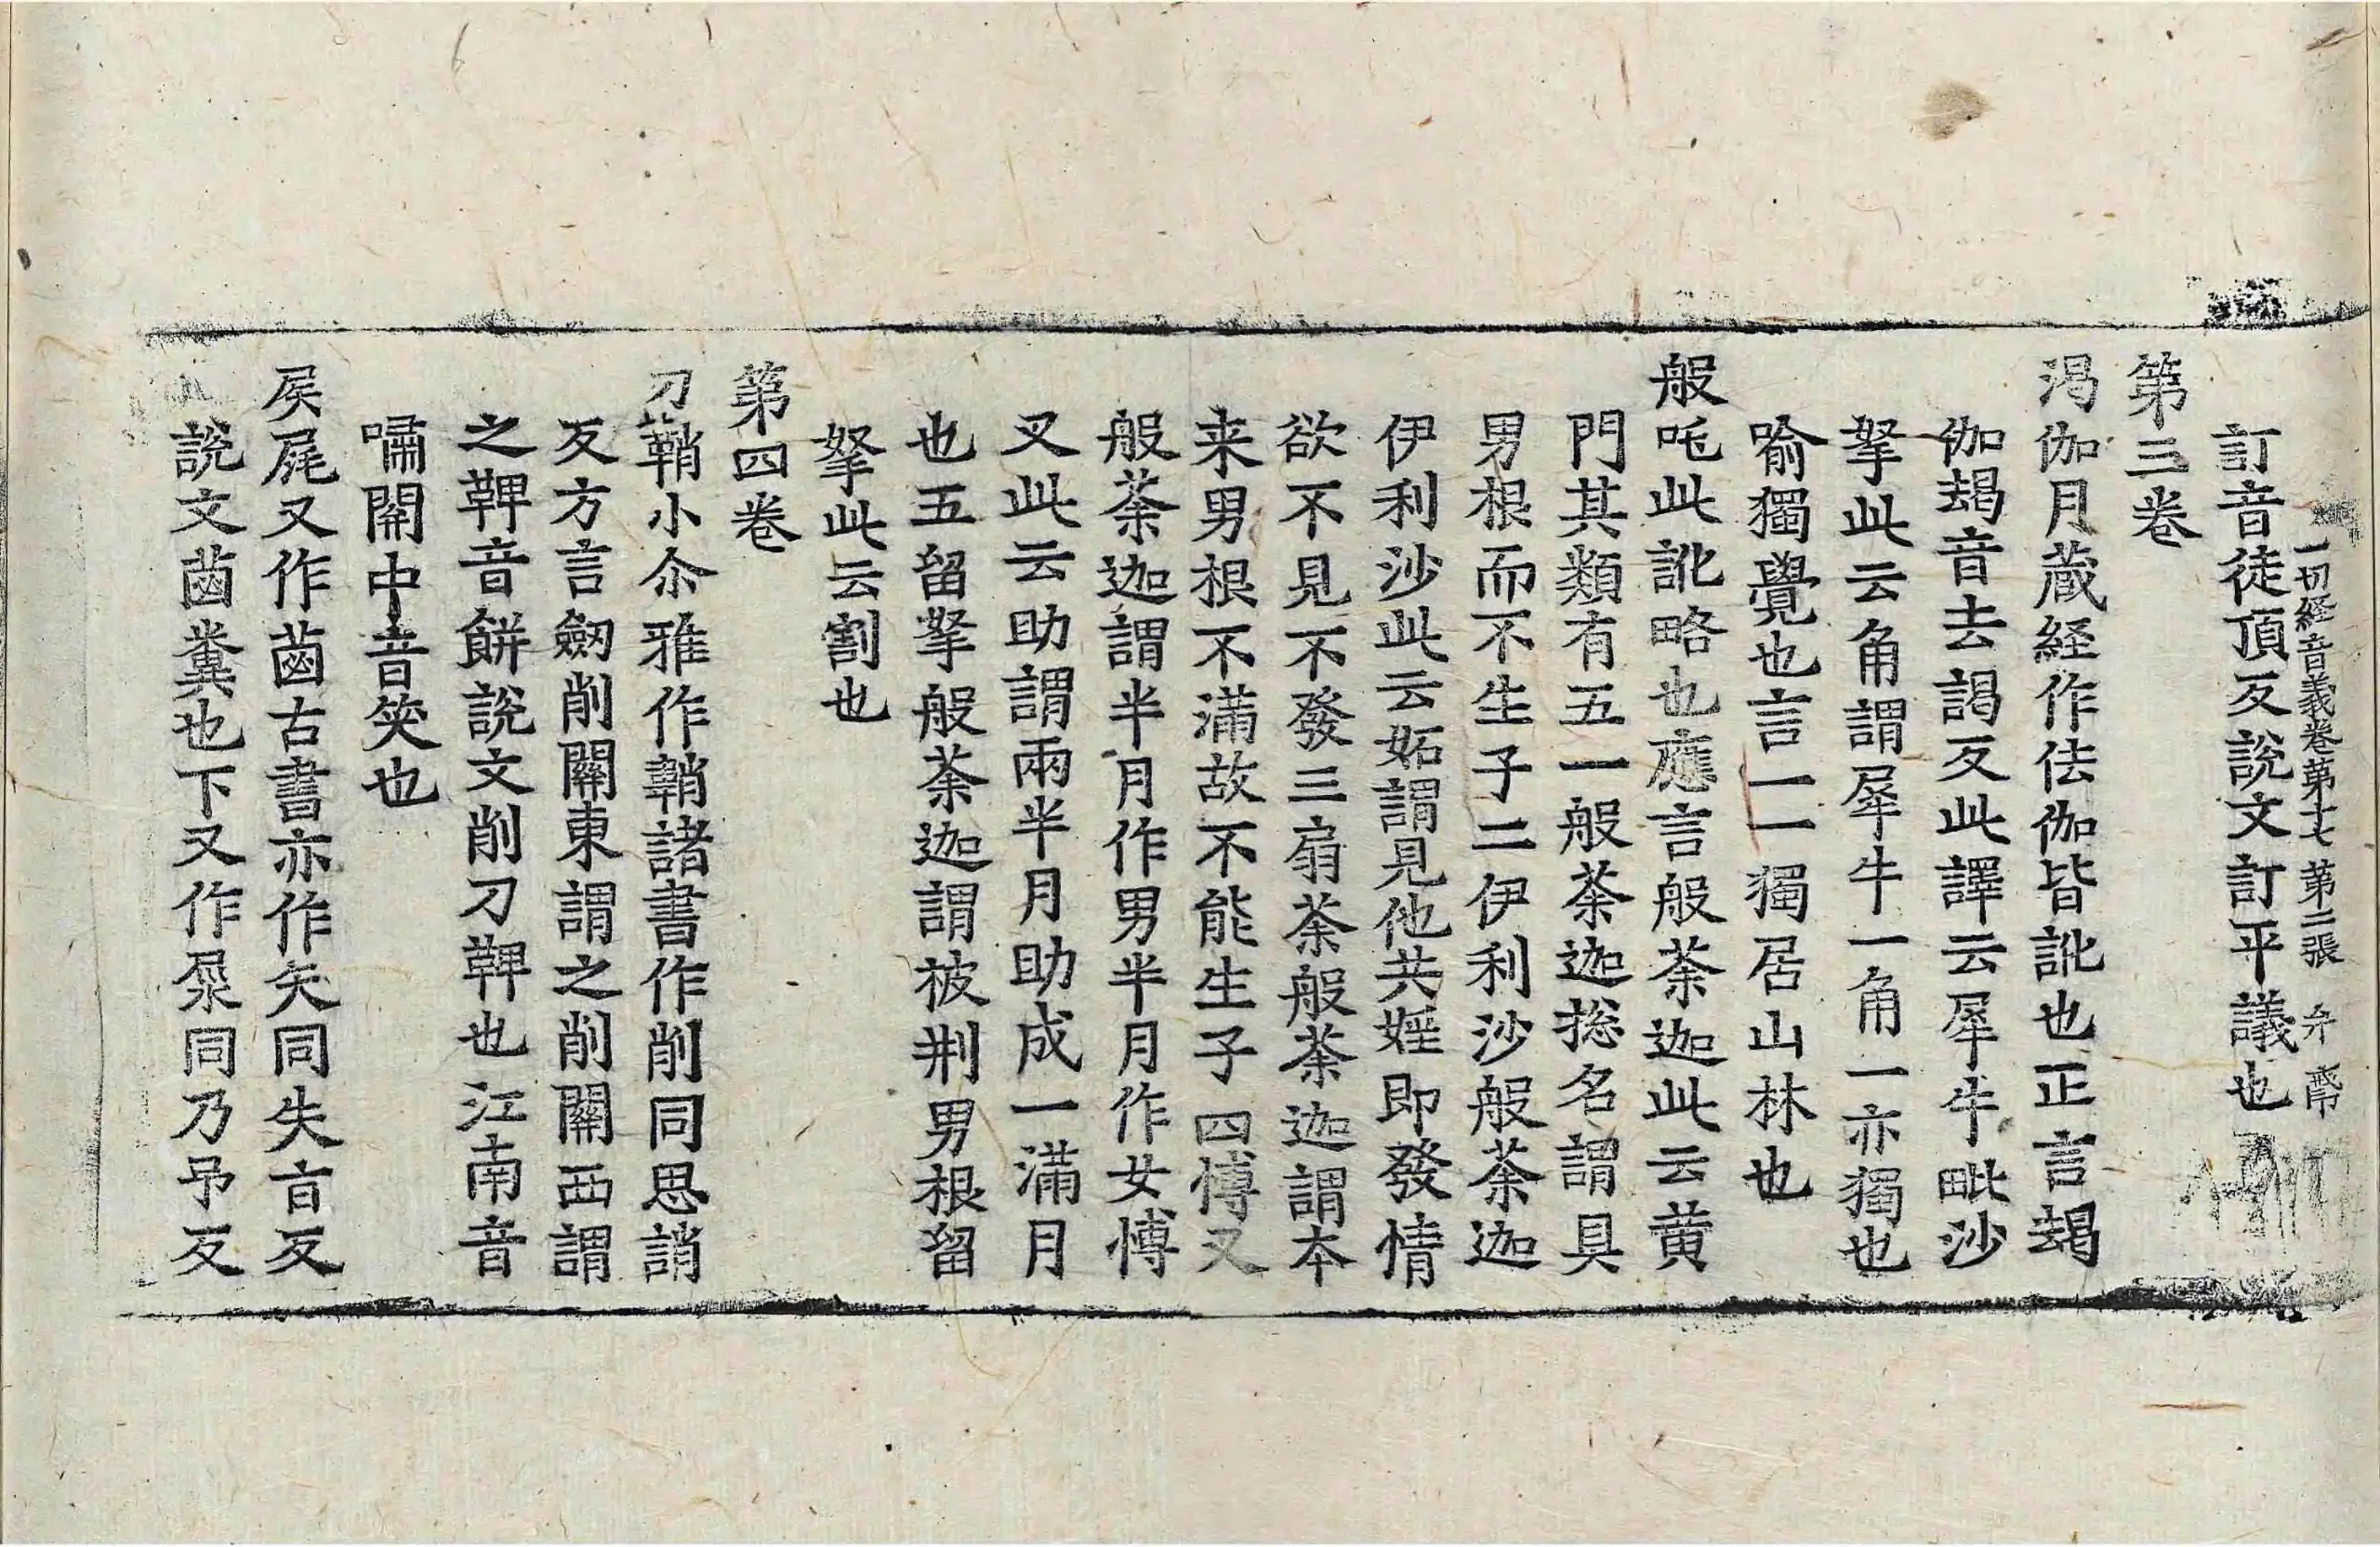 一切経音義卷第十七 第二張 弁 帋
訂音徒頂反說文訂平議也
第三卷
渇伽月蔵経作佉伽皆訛也正言朅
伽朅音去謁反此譯云犀牛毗沙
拏此云角謂犀牛一角一亦獨也
喻獨覺也言一一獨居山林也
般吒此訛略也應言般荼迦此云黄
門其類有五一般荼迦捴名謂具
男根而不生子二伊利沙般荼迦
伊利沙此云妬謂見他共婬即發情
欲不見不發三扇荼般荼迦謂本
来男根不滿故不能生子四愽叉
般荼迦謂半月作男半月作女愽
叉此云助謂兩半月助成一滿月
也五留拏般荼迦謂被刑男根留
拏此云割也
第四卷
刀鞘小尒雅作鞘諸書作削同思誚
反方言劔削關東謂之削關西謂
之鞞音餅說文削刀鞞也江南音
嘯關中音笑也
屎屍又作𦳊古書亦作矢同失旨反
說文𦳊糞也下又作㞙同乃予反